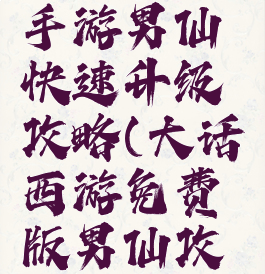 手游男仙
快速升级
攻略(大话
西游免费
版男仙攻